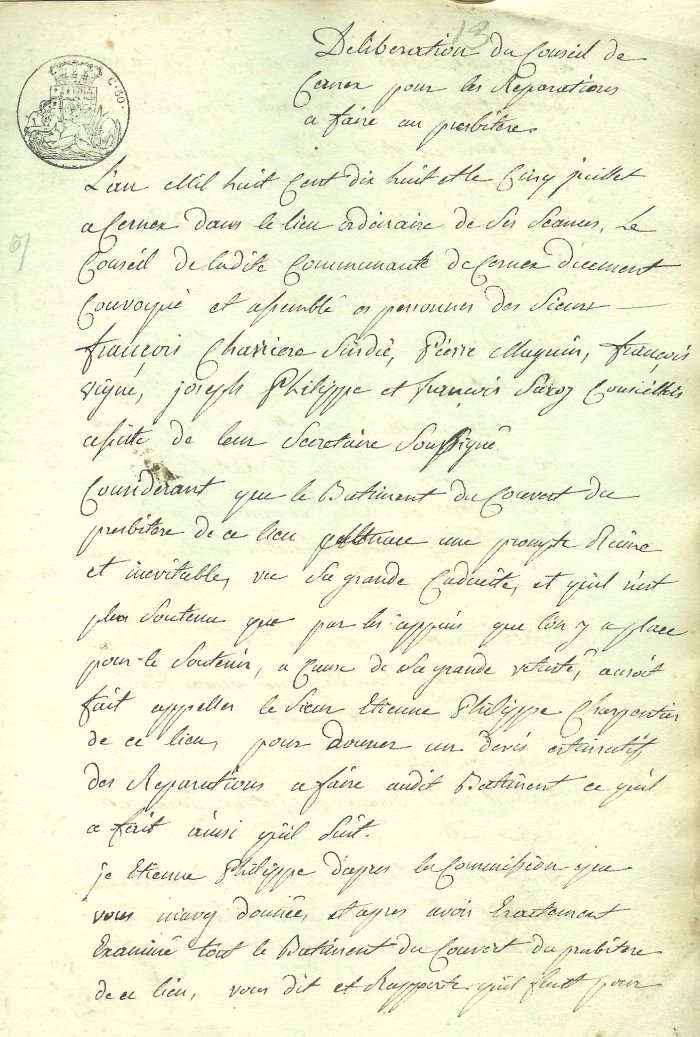 13
C. 30.
Deliberation du Conseil de
Cernex pour les Reparations
a faire au presbitere
L'an Mil huit Cent dix huit et le Cinq juillet
a Cernex dans le lieu ordinaire de ses seances, Le
Conseil de ladite Communauté de Cernex duement
Convoqué et assemblé es personnes des Sieurs
françois Charriere Sindic, Pierre Magnin, françois
vigné, joseph Philippe et françois Conseillers
de leur Secretaire Soussigné.
Considerant que le Batiment du Couvert du
presbitere de ce lieu une prompte Ruine
et inevitable, vu Sa grande Caducité, et qu'il n'est
plus Soutenu que par les appuis que l'on y a placé
pour le Soutenir, a Cause de Sa grande vetusté, auroit
fait appeller le Sieur Etienne Philippe Charpentier
de ce lieu, pour donner un devis estimatif
des Reparations a faire audit Batiment ce qu'il
a fait ainsi qu'il Suit.
je Etienne Philippe d'apres la Commission que
vous m'avez donnée, et apres avoir Exactement
Examiné tout le Batiment du Couvert du presbitere
de ce lieu, vous dit et Rapporte qu'il faut pour